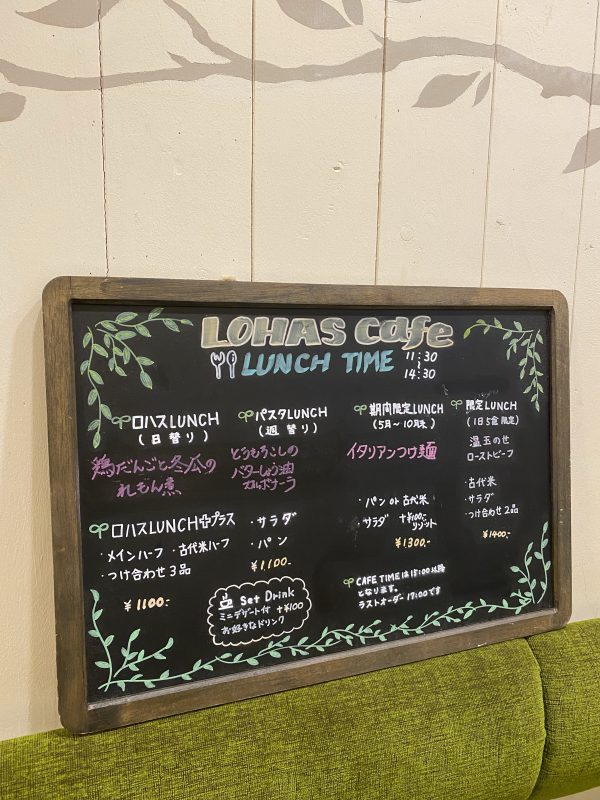 LOHAS cafe
LUNCH TIME 11:30
~
14:30
ロハスLUNCH
(日替り)
鶏だんごと冬瓜の
れもん煮
ロハスLUNCHプラス
・メインハーフ ・古代米ハーフ
・つけ合わせ3品
¥1100.-
パスタLUNCH
(週替り)
とうもろこしの
バターしょう油
カルボナーラ
・サラダ
・パン
¥1,100.-
Set Drink
ミニデザート付 +¥100
お好きなドリンク
期間限定LUNCH
(5月~10月末)
イタリアンつけ麺
・パン or 古代米
・サラダ +¥100.-
リゾット
¥1300.-
CAFE TIMEは15:00以降
となります。
ラストオーダー 17:00です
限定LUNCH
(1日5食限定)
温玉のせ
ローストビーフ
・古代米
・サラダ
・つけ合わせ2品
¥1400.-